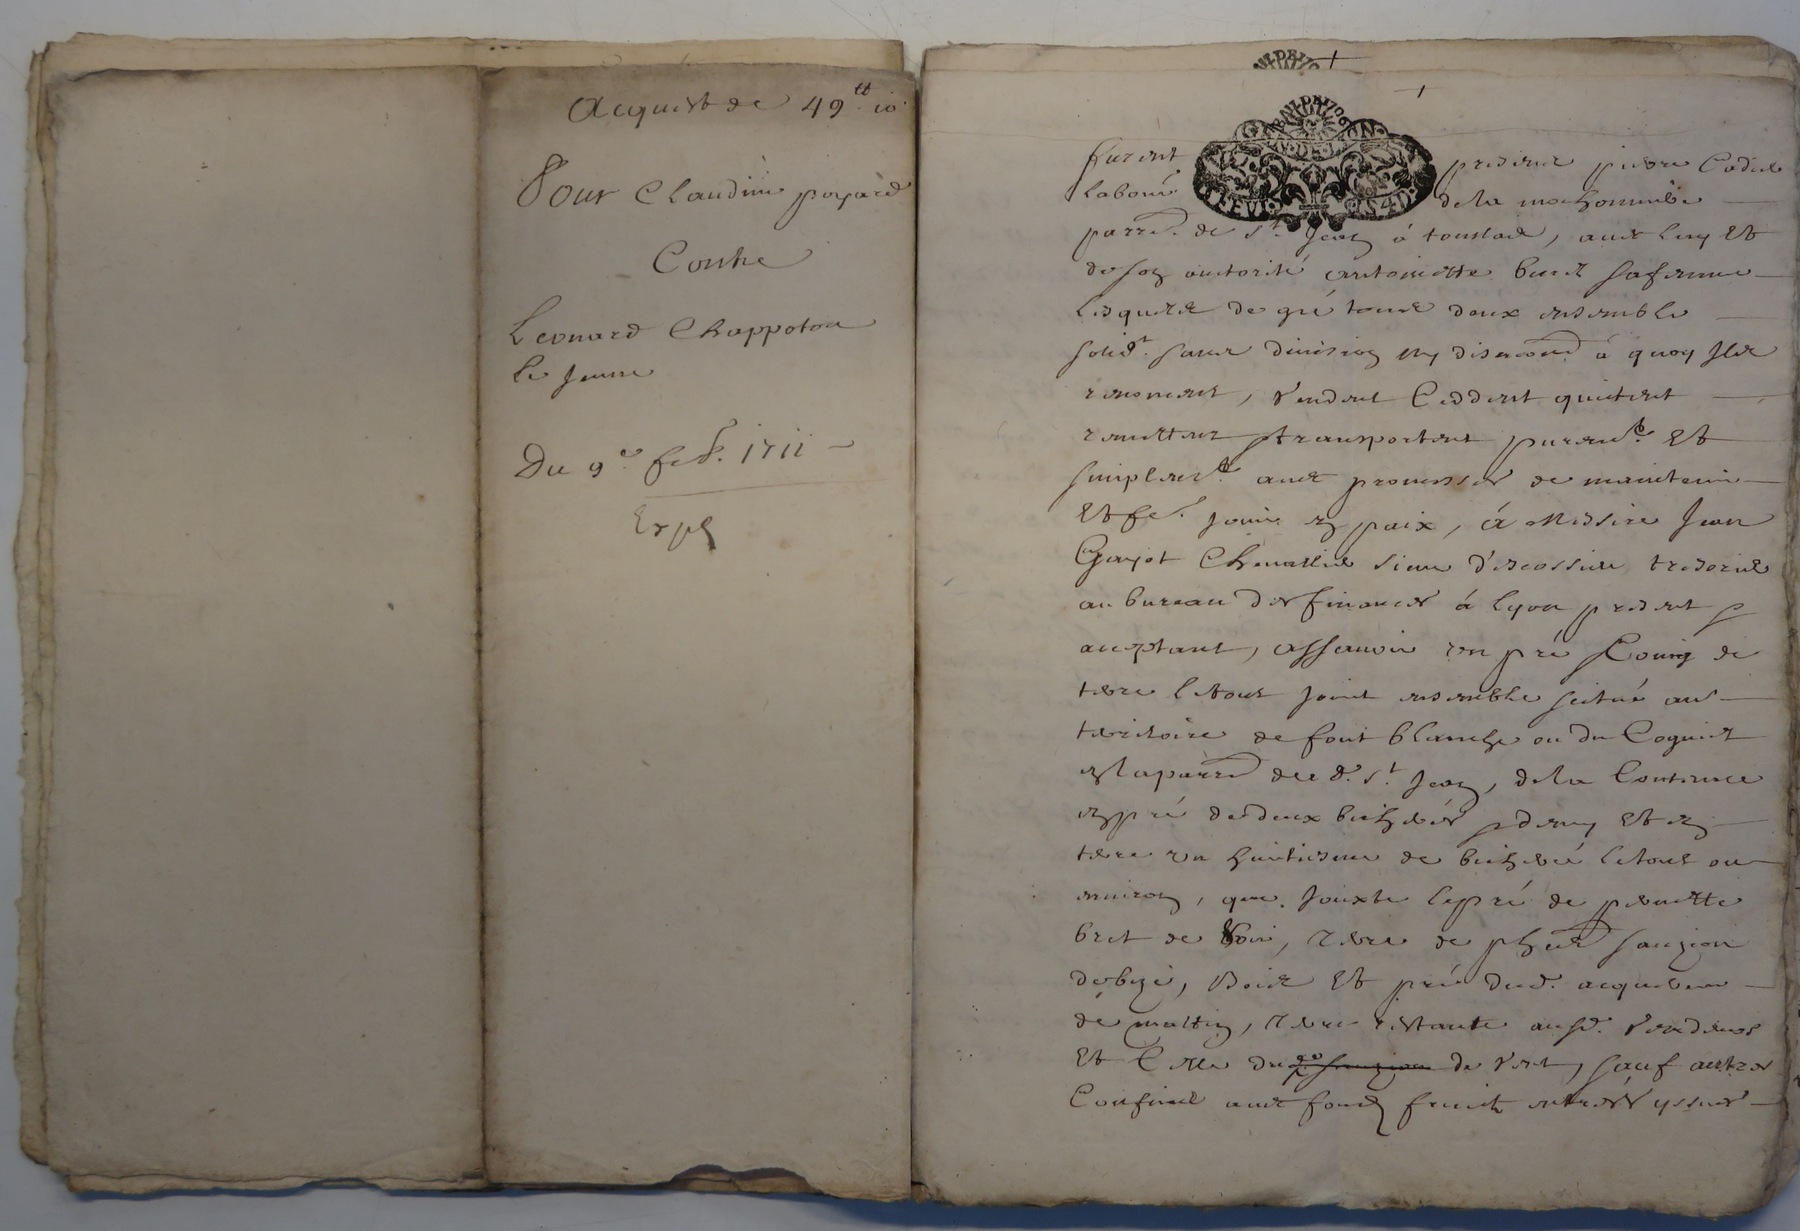 Acquist de 49 ͭ ͭ 10
Pour Claudine poyard
Contre
Leonard Chappoton
le jeune
Du 9.e feb. 1711
Exp
furent present pierre
laboure de la
parr. de St. Jean à toulad, avec luy Et
de son authorité antoinette sa femme
lesquels de gré tous deux ensemble
solid.t sans division ny discution à quoy Ils
renoncent, Vendent Ceddent quittent
remettent transportent purem.t Et
simplem.t avec promesse de maintenir
Et fe. jouir en paix, à Messire Jean
Gayot Chevallier sieur d'escossieu tresorier
au bureau des finances à lyon present
acceptant, assavoir un pré & coing de
terre le tout joint ensemble scitué au
territoire de font blanche ou du Cognet
en la parr. dud. St. Jean, de la Contenue
en pré de deux bicherées & demy Et en
terre un huitiesme de bicherée le tout ou
environ, que jouxte le pré de pernette
bret de, terre de sauzion
debize, Bois Et pré dud. acquereur
de mattin, terre restante ausd. Vendeurs
Et Celle du de vert, sauf autres
Confins avec fonds fruits entrées yssues